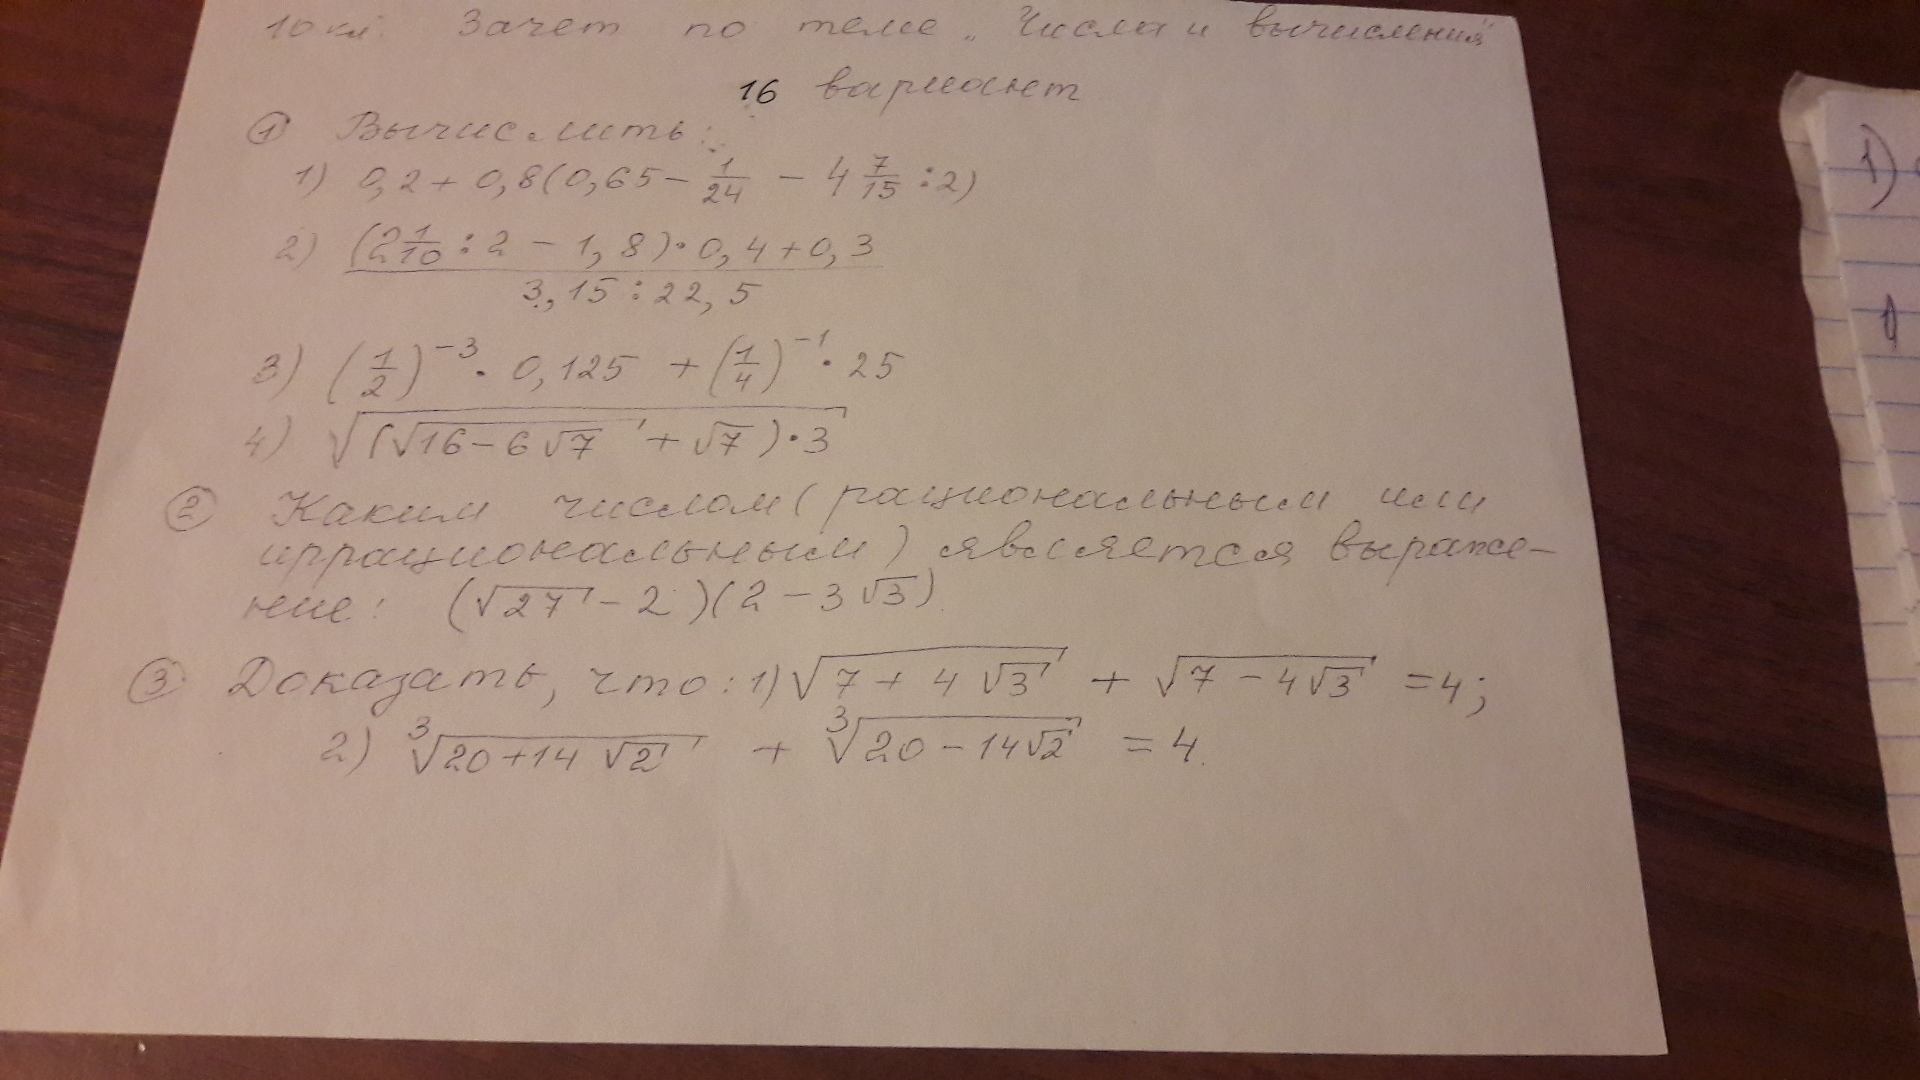 10 кл. Зачет по теме „Числа и вычисления"
16 вариант
① Вычислить:
1) 0,2 + 0,8(0,65 - 1/24 - 4 7/15 : 2)
2) ((2 1/10 : 2 - 1,8) · 0,4 + 0,3)/(3,15 : 22,5)
3) (1/2)^-3 · 0,125 + (1/4)^-1 · 25
4) √((√(16 - 6√7) + √7) · 3)
② Каким числом (рациональным или
иррациональным) является выраже-
ние: (√27 - 2)(2 - 3√3)
③ Доказать, что: 1) √(7 + 4√3) + √(7 - 4√3) = 4;
2) ∛(20 + 14√2) + ∛(20 - 14√2) = 4.
1)